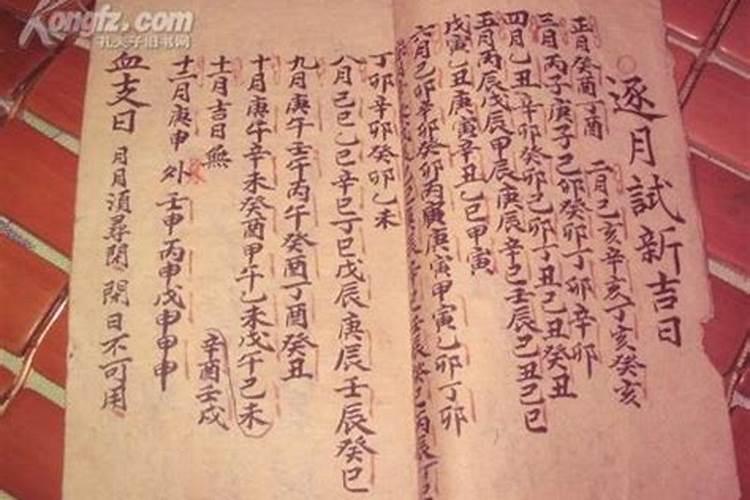 Kongfz.com
孔夫子旧书网
逐月試新吉日
正月癸酉丁酉 二月己亥辛亥丁亥癸亥
三月丙子庚子己卯癸卯丁卯辛卯
四月乙丑辛卯癸卯己卯丁丑己丑癸丑
五月丙辰戊辰甲辰庚辰辛巳壬辰己丑己巳
戊寅乙丑庚寅辛丑乙巳甲寅
六月己卯辛卯癸卯丙寅庚寅甲寅乙卯丁卯
丁卯辛卯癸卯乙未
八月己巳乙巳辛巳丁巳戊辰庚辰壬辰癸巳
九月庚午壬午丙午癸酉丁酉癸丑
十月庚午辛未癸酉甲午乙未戊午己未
辛酉壬戌
十一月吉日無
十二月庚申 外壬申丙申戊申甲申
血支日 月月須尋閉 閉日不可用